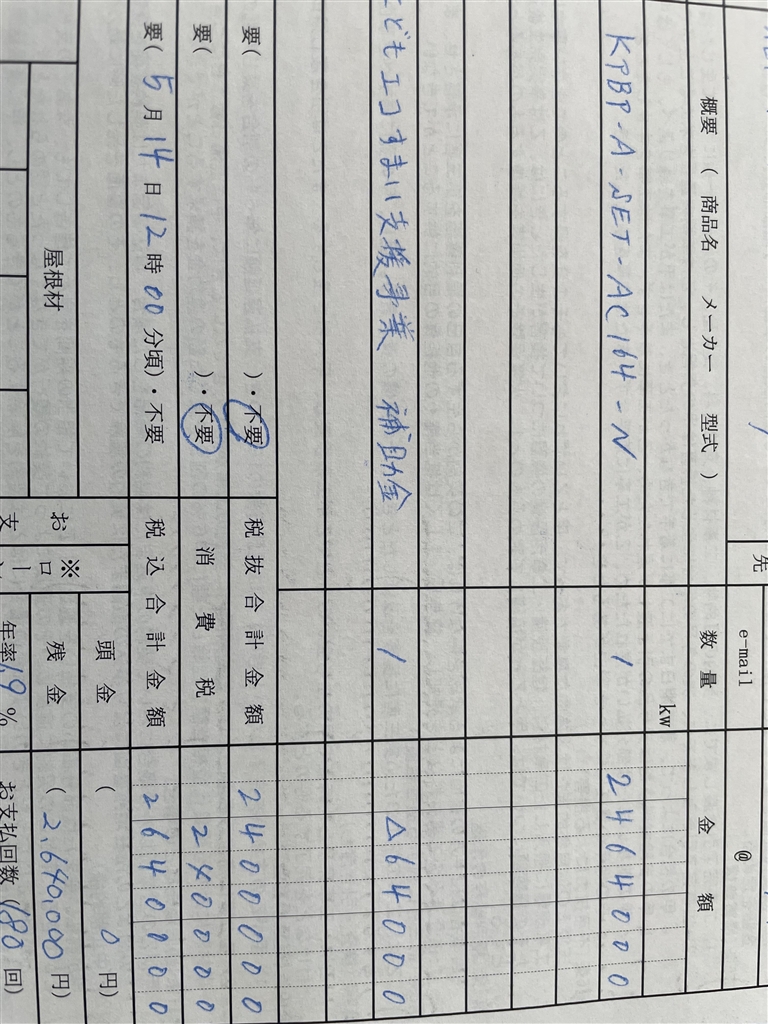 先 e-mail @
概要 ( 商品名 メーカー 型式 ) 数量 金額
kw
KPBP-A-SET-AC164-N 1 2464000
こどもエコすまい支援事業 補助金 1 △64000
要( )・不要 税抜合計金額 2400000
要( )・不要 消費税 240000
要( 5月14日12時00分頃)・不要 税込合計金額 2640000
頭金 ( 0円)
屋根材 残金 ( 2,640,000円)
年率1.9% お支払回数 (180回)